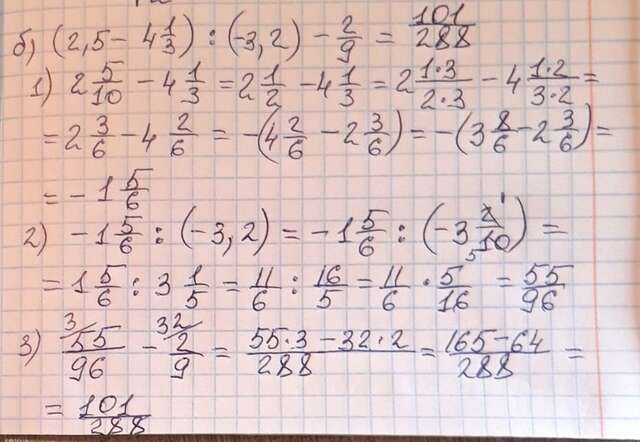 б) (2,5 - 4 1/3) : (-3,2) - 2/9 = 101/288
1) 2 5/10 - 4 1/3 = 2 1/2 - 4 1/3 = 2 1·3/2·3 - 4 1·2/3·2 =
= 2 3/6 - 4 2/6 = -(4 2/6 - 2 3/6) = -(3 8/6 - 2 3/6) =
= -1 5/6
2) -1 5/6 : (-3,2) = -1 5/6 : (-3 2̸ 1/5 10̸) =
= 1 5/6 : 3 1/5 = 11/6 : 16/5 = 11/6 · 5/16 = 55/96
3) 3/ 55/96 - 32/ 2/9 = 55·3-32·2/288 = 165-64/288 =
= 101/288